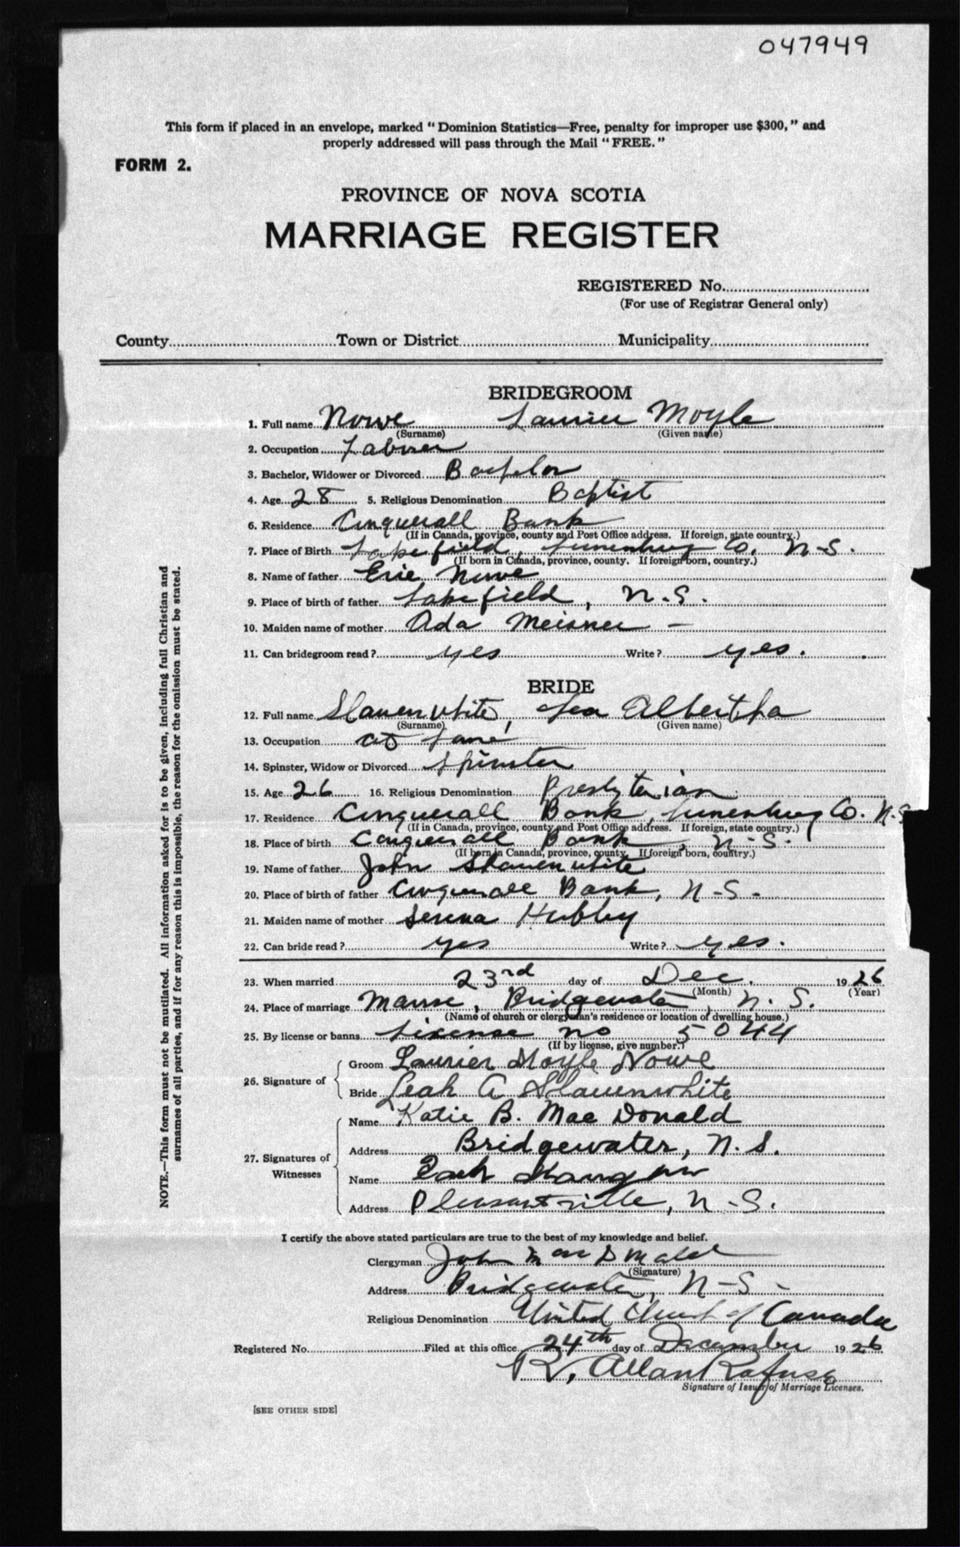 047949
This form if placed in an envelope, marked "Dominion Statistics—Free, penalty for improper use $300," and
properly addressed will pass through the Mail "FREE."
FORM 2.
PROVINCE OF NOVA SCOTIA
MARRIAGE REGISTER
REGISTERED No.
(For use of Registrar General only)
County Town or District Municipality
BRIDEGROOM
1. Full name Nowe Laurier Moyle
(Surname) (Given name)
2. Occupation Laborer
3. Bachelor, Widower or Divorced Bachelor
4. Age 28 5. Religious Denomination Baptist
6. Residence Conquerall Bank
(If in Canada, province, county and Post Office address. If foreign, state country.)
7. Place of Birth Lapefield, Lunenburg Co. N-S.
(If born in Canada, province, county. If foreign born, country.)
8. Name of father Eric Nowe
9. Place of birth of father Lapefield, N.S.
10. Maiden name of mother Ada Meisner -
11. Can bridegroom read? yes Write? yes.
BRIDE
12. Full name Slauenwhite, Lea Albertha
(Surname) (Given name)
13. Occupation at
14. Spinster, Widow or Divorced Spinster
15. Age 26 16. Religious Denomination Presbyterian
17. Residence Conquerall Bank, Lunenburg Co. N.S
(If in Canada, province, county and Post Office address. If foreign, state country.)
18. Place of birth Conquerall Bank, N-S.
(If born in Canada, province, county. If foreign born, country.)
19. Name of father John Slauenwhite
20. Place of birth of father Conquerall Bank, N-S-
21. Maiden name of mother Serena Hubley
22. Can bride read? yes Write? yes.
23. When married 23rd day of Dec. 1926
(Month) (Year)
24. Place of marriage Manse, Bridgewater, N.S.
(Name of church or clergyman's residence or location of dwelling house.)
25. By license or banns License no 5044
(If by license, give number.)
26. Signature of
Groom Laurier Moyle Nowe
Bride Leah A Slauenwhite
27. Signatures of Witnesses
Name Katie B. Mac Donald
Address Bridgewater, N.S.
Name
Address Pleasantville, N-S.
I certify the above stated particulars are true to the best of my knowledge and belief.
Clergyman John Mac Donald
(Signature)
Address Bridgewater, N-S-
Religious Denomination United Church of Canada
Registered No. Filed at this office 24th day of December 1926
R. Allan Rafuse
Signature of Issuer of Marriage Licenses.
[SEE OTHER SIDE]
NOTE.—This form must not be mutilated. All information asked for is to be given, including full Christian and
surnames of all parties, and if for any reason this is impossible, the reason for the omission must be stated.